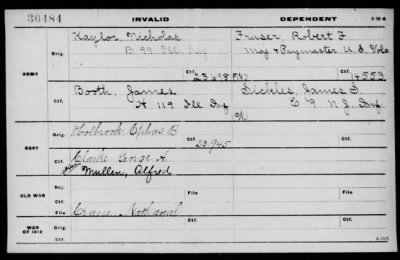 36484 INVALID DEPENDENT
Kaylor, Nicholas Fraser, Robert F
Orig. B 99 Ill Inf Maj + Paymaster U.S. Vols
ARMY 23698 14553
Booth, James Sickles, James S.
Ctf. H 119 Ill Inf E 9 N.J. Inf
Holbrook Ephas B
Orig. Ctf. 23.945
NAVY
Clarke George A.
Ctf. Mullen, Alfred File
Rej. Ctf.
OLD WAR
File Crane Nathaniel
WAR OF 1812 Ctf. Ctf.